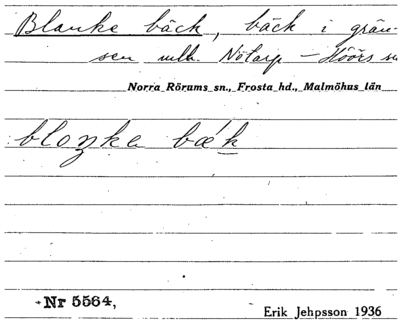 Blanke bäck, bäck i grän-
sen mlln. Nötarp - Höörs sn
Norra Rörums sn., Frosta hd., Malmöhus län
bloŋke bæ´k
Nr 5564,
Erik Jehpsson 1936